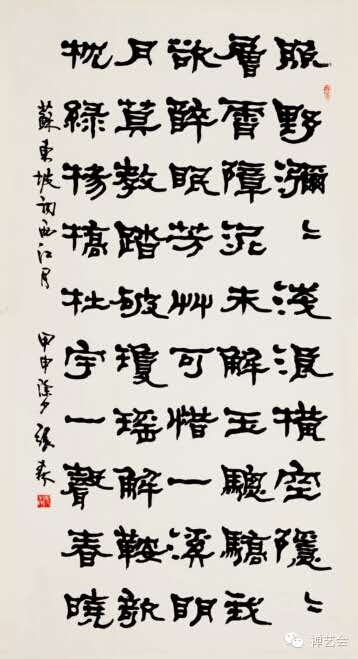 照野瀰〻淺浪橫空隱〻
層霄障泥未解玉驄驕我
欲醉眠芳艸可惜一溪明
月莫教踏破瓊瑤解鞍欹
枕綠楊橋杜宇一聲春曉
蘇東坡詞西江月 甲申除夕 張森
禅艺会